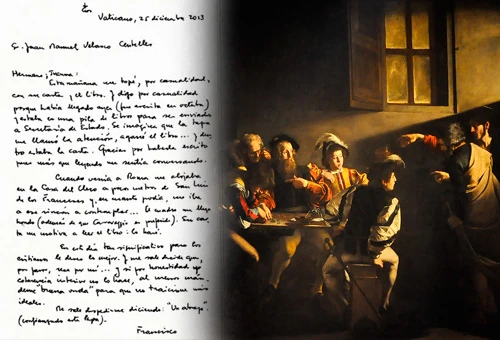 Vaticano, 25 diciembre 2013
Sr. Juan Manuel Velasco Centelles
Hermano,
Esta mañana me topé, por casualidad,
con su carta y el libro. Y digo por casualidad
porque había llegado ayer (fue escrita en octubre)
y estaba en una pila de libros para ser enviados
a Secretaría de Estado. Se imagina que la tapa
me llamó la atención, agarré el libro... y
estaba la carta. Gracias por haberla escrito
pues más que leyendo me sentía conversando.
Cuando venía a Roma me alojaba
en la Casa del Clero a pocos metros de San Luis
de los Franceses y, en cuanto podía, me iba
a ese rincón a contemplar... el cuadro me llega
hondo (además de que Caravaggio es mi preferido). Su carta
me motiva a leer el libro: lo haré.
En este día tan significativo para los
cristianos le deseo lo mejor. Y me sale decirle que,
por favor, rece por mí... y si por honestidad y
coherencia interior no lo hace, al menos mán-
deme "buena onda" para que no traicione mis
ideales.
Me sale despedirme diciendo: "Un abrazo".
(
Francisco